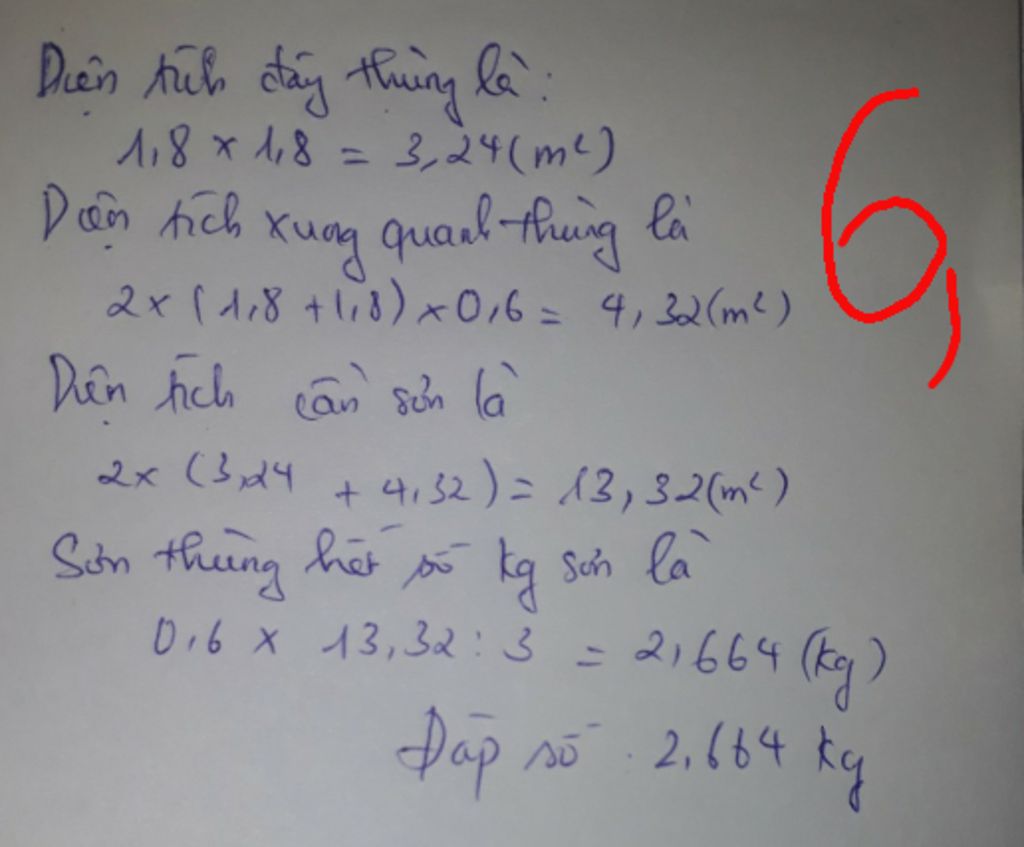 Diện tích đáy thùng là:
1,8 x 1,8 = 3,24 (m²)
6,
Diện tích xung quanh thùng là
2 x (1,8 + 1,8) x 0,6 = 4,32 (m²)
Diện tích cần sơn là
2 x (3,24 + 4,32) = 13,32 (m²)
Sơn thùng hết số kg sơn là
0,6 x 13,32 : 3 = 2,664 (kg)
Đáp số : 2,664 kg